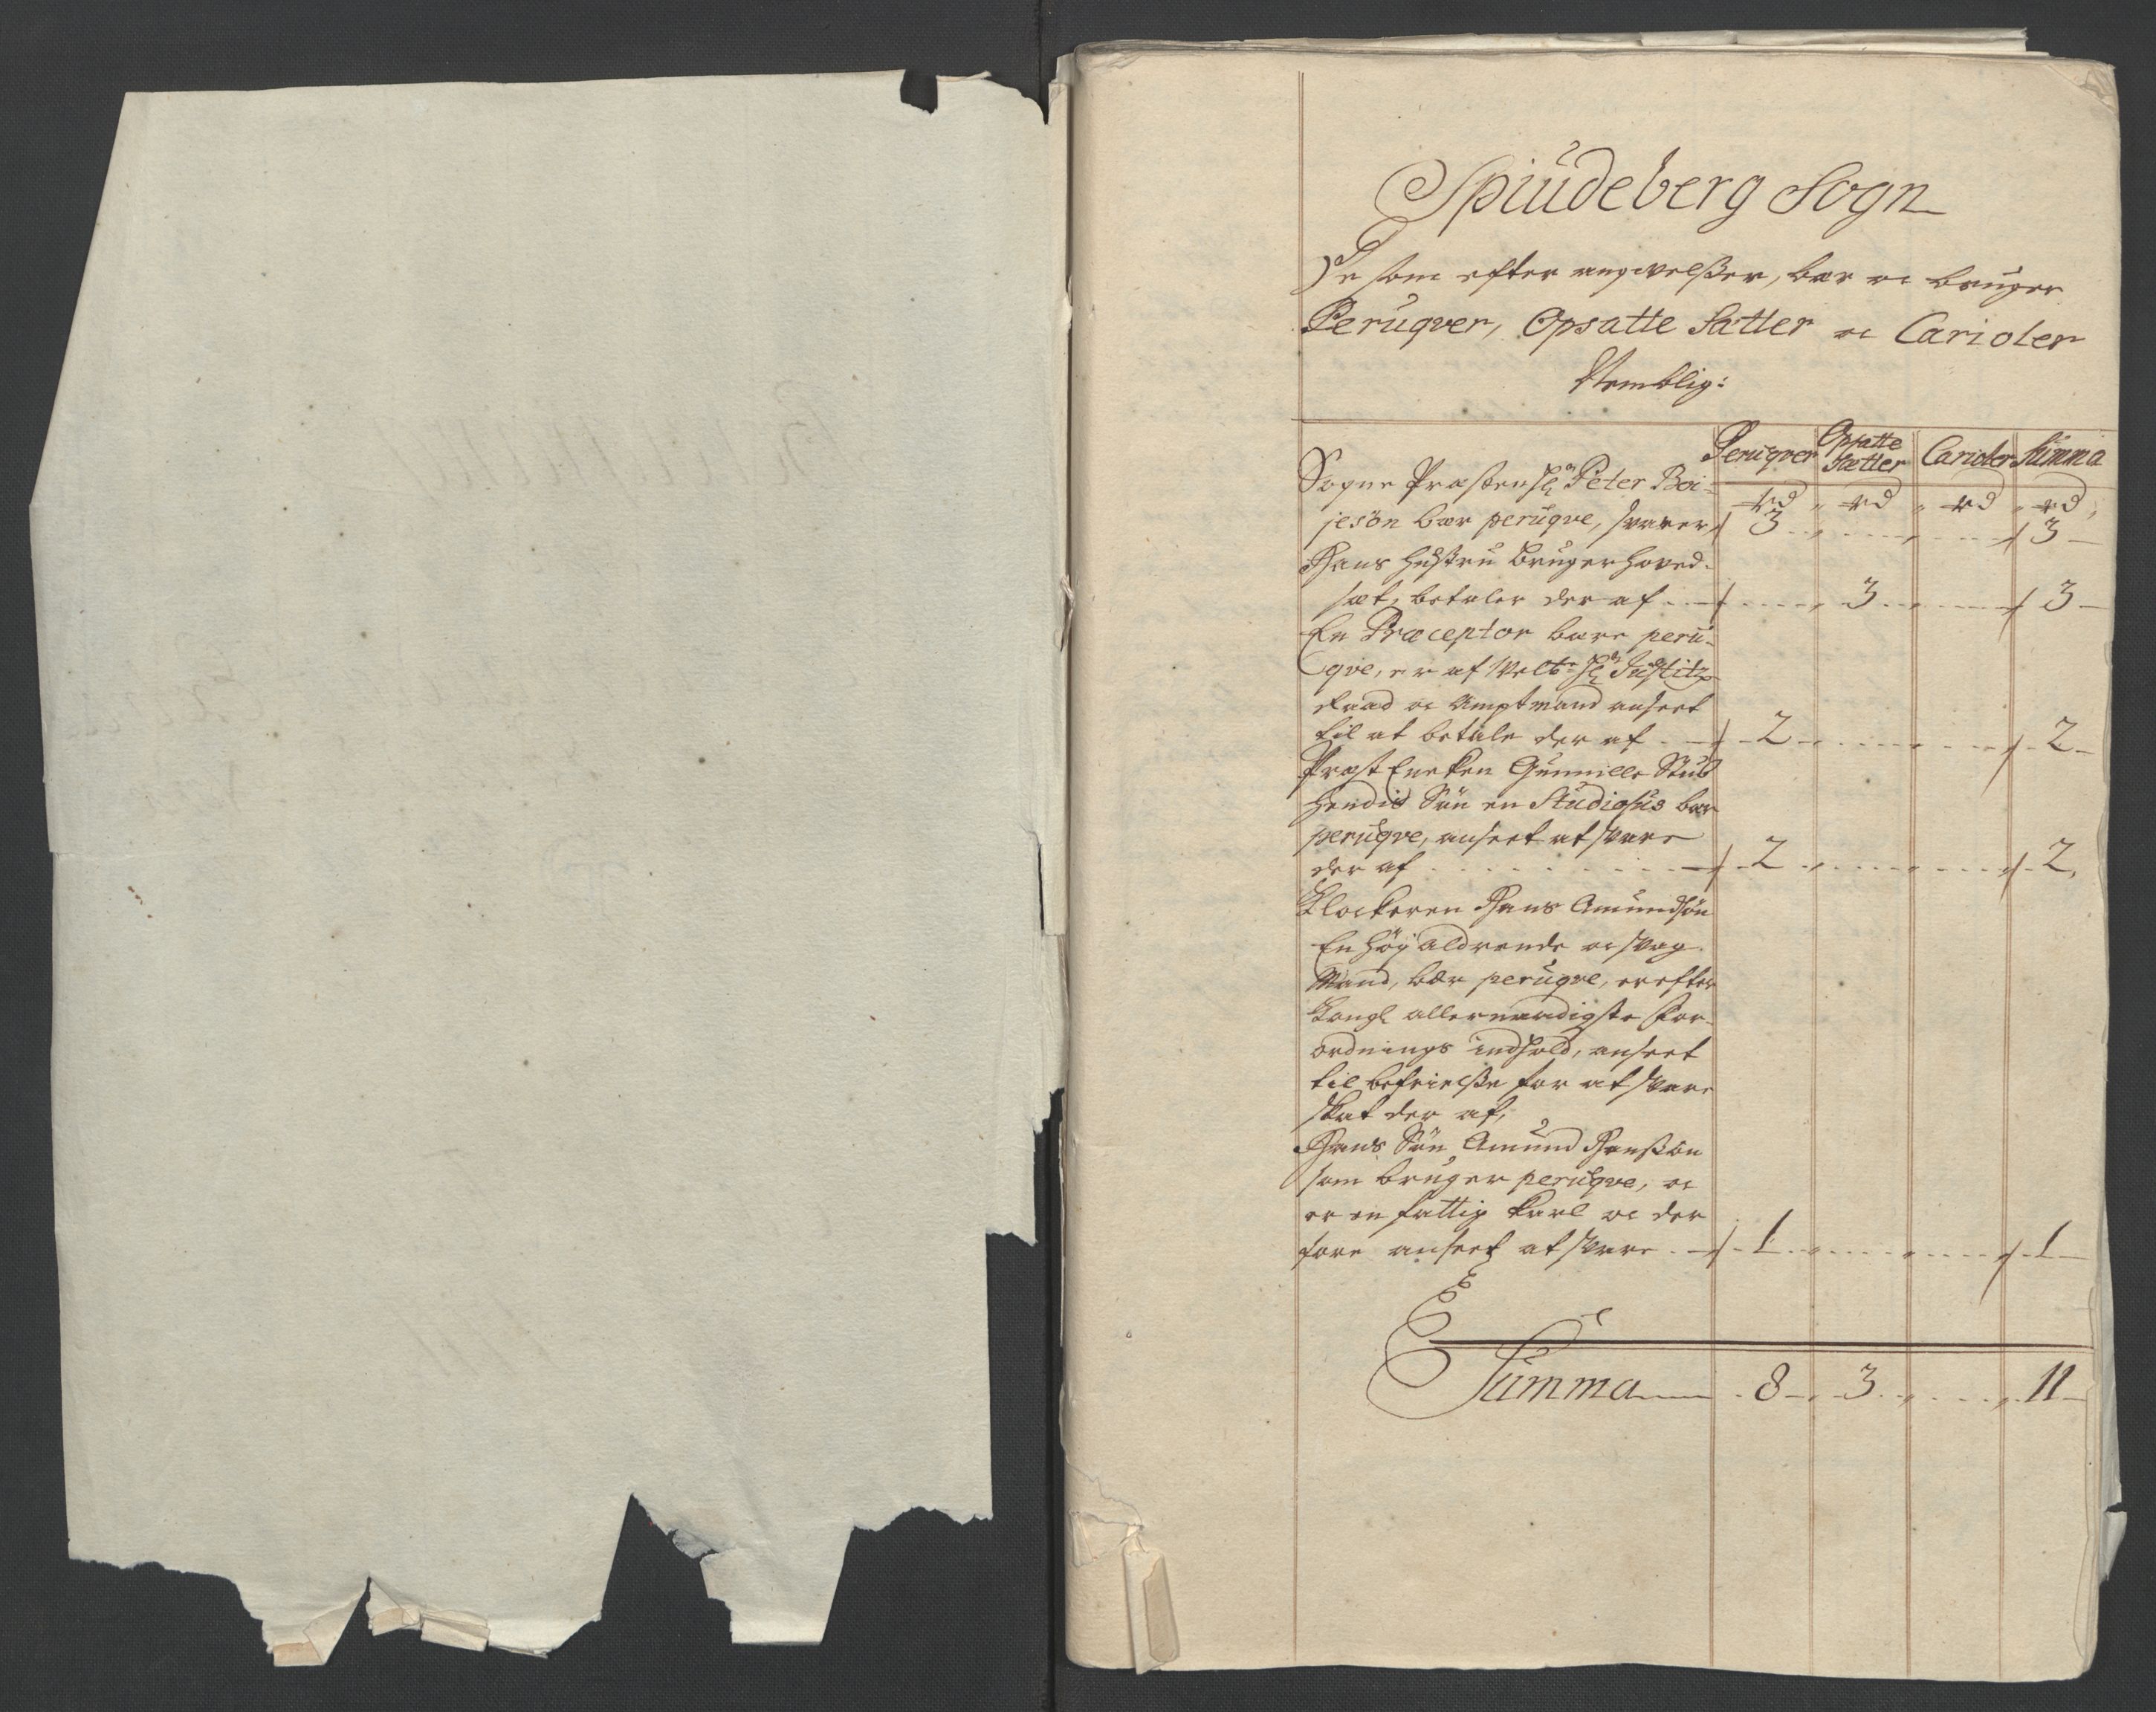 Spiudeberg Sogn
De som efter angivelsser, bær oc bruger
Peruqver, Opsatte Sætter oc Carioler
Nemblig:
Peruqver Opsatte Sætter Carioler Summa
Sogne Præsten Hr Peter Boi- rd rd rd rd
jesön bær peruqve, svarer 3 3
Hans Hustru bruger hoved-
sæt, betaler der af 3 3
En Præceptor bære peru-
qve, er af Velbr Hr Justitz
Raad oc Amptmand anseet
til at betale der af 2 2
Præst Encken Gunnille Stub
hendis Sön en Studiosus bær
peruqve, anseet at svare
der af 2 2
Klockeren Hans Amundsön
En höy aldrende oc svag
Mand, bær peruqve, er efter
Kongl allernaadigste For-
ordnings indhold, anseet
til befrielsse for at svare
skat der af,
Hans Sön Amund Hanssön
som bruger peruqve, oc
er en fattig karl oc der
fore anseet at svare 1 1
Summa 8 3 11